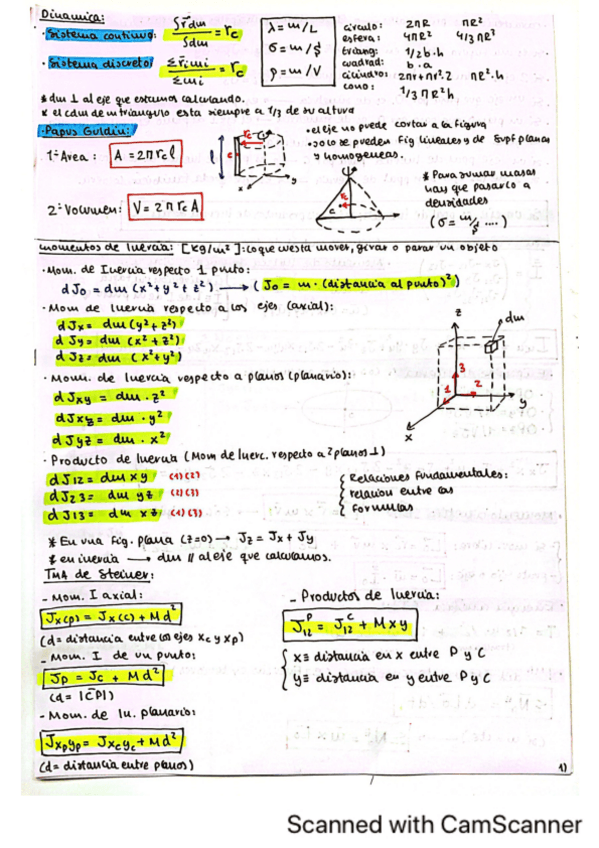 Dinamica:
· Sistema continuo: ∫r̄dm / ∫dm = r_c
· Sistema discreto: Σr̄imi / Σmi = r_c
λ = m/L
σ = m/S
ρ = m/V
circulo: 2πR πR²
esfera: 4πR² 4/3πR³
triang: 1/2 b·h
cuadrad: b·a
cilindro: 2πr+πr²·2 πR²·h
cono: 1/3 πR²h
* dm ⊥ al eje que estamos calculando.
* el cdm de un triangulo esta siempre a 1/3 de su altura
· Papus Guldin:
1º Area: A = 2π r_c l
2º Volumen: V = 2π r_c A
· el eje no puede cortar a la figura
· solo se pueden fig lineales y de supf planas
y homogeneas.
* Para sumar masas
hay que pasarlo a
densidades
(σ = m/S ....)
momentos de Inercia: [kg/m²]: lo que cuesta mover, girar o parar un objeto
· Mom. de Inercia respecto 1 punto:
dJo = dm (x²+y²+z²) → (Jo = m·(distancia al punto)²)
· Mom de Inercia respecto a los ejes (axial):
dJx = dm (y²+z²)
dJy = dm (x²+z²)
dJz = dm (x²+y²)
· Mom. de Inercia respecto a planos (planario):
dJxy = dm·z²
dJxz = dm·y²
dJyz = dm·x²
z
dm
3
1
2
y
x
· Producto de Inercia (Mom de Inerc. respecto a 2 planos ⊥)
dJ12 = dm xy (1)(2)
dJ23 = dm yz (2)(3)
dJ13 = dm xz (1)(3)
{ Relaciones Fundamentales:
relacion entre las
formulas
* En una fig. plana (z=0) → Jz = Jx + Jy
* en inercia → dm // al eje que calculamos.
TMA de Steiner:
- Mom. I axial:
Jx(p) = Jx(c) + Md²
(d = distancia entre los ejes xc y xp)
- Mom. I de un punto:
Jp = Jc + Md²
(d = |C̄P̄|)
- Mom. de In. planario:
Jxpyp = Jxcyc + Md²
(d = distancia entre planos)
- Productos de Inercia:
J₁₂ᴾ = J₁₂ᶜ + Mxy
{ x ≡ distancia en x entre P y C
y ≡ distancia en y entre P y C
1)
Scanned with CamScanner